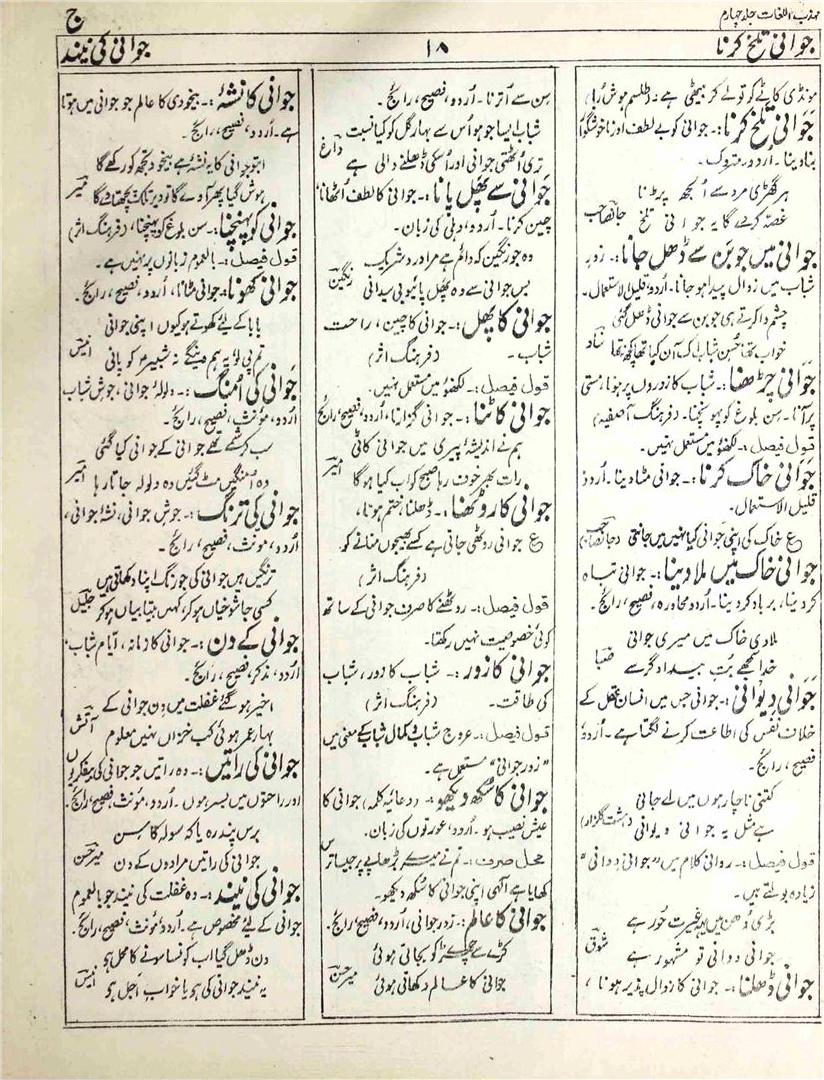 مہذب اللغات جلد چہارم
ج
جوانی تلخ کرنا
۱۸
جوانی کی نیند
مونڈی کاٹے کو تو لے کر بیٹھی ہے۔ (طلسم ہوش رُبا)
جوانی تلخ کرنا:۔ جوانی کو بے لطف اور ناخوشگوار
بنا دینا۔ اردو، متروک۔
ہر گھڑی مرد سے اُلجھ پڑنا
غصہ کرکے گا یہ جوانی تلخ جانصاحب
جوانی میں جوبن سے ڈھل جانا:۔ زور
شباب میں زوال پیدا ہو جانا۔ اُردو، قلیل الاستعمال۔
چشم وا کرتے ہی جوبن سے جوانی ڈھل گئی
خواب تھا حُسن شباب اک آن کیا تھا کچھ نہ تھا شاد
جوانی چڑھنا:۔ شباب کا زوروں پر ہونا، مستی
پر آنا۔ سن بلوغ کو پہونچنا۔ (فرہنگ آصفیہ)
قول فیصل:۔ لکھنؤ میں مستعمل نہیں۔
جوانی خاک کرنا:۔ جوانی مٹا دینا۔ اُردو
قلیل الاستعمال۔
ع خاک کی اپنی جوانی کیا نہیں میں جانتی (جانصاحب)
جوانی خاک میں ملا دینا:۔ جوانی تباہ
کر دینا، برباد کر دینا۔ اُردو محاورہ، فصیح، رائج۔
ملا دی خاک میں میری جوانی
خدا سمجھے بُت بیداد گر سے صبا
جوانی دیوانی:۔ جوانی جس میں انسان عقل کے
خلاف نفس کی اطاعت کرنے لگتا ہے۔ اُردو
فصیح، رائج۔
کتنی ناچار ہوں میں لے جانی
بے مثل یہ جوانی دیوانی (بہشت گلزار)
قول فیصل:۔ روانی کلام میں "جوانی دوانی"
زیادہ بولتے ہیں۔
بڑی دُھن میں یہ غیرت حُور ہے
جوانی دوانی تو مشہور ہے شوق
جوانی ڈھلنا:۔ جوانی کا زوال پذیر ہونا،
سِن سے اُترنا۔ اُردو، فصیح، رائج۔
شباب ایسا جو ہو اُس سے بہار گل کو کیا نسبت
تری اُٹھتی جوانی اور اُسکی ڈھلنے والی ہے داغ
جوانی سے پھل پانا:۔ جوانی کا لطف اُٹھانا،
چین کرنا۔ اُردو، دہلی کی زبان۔
وہ جو رنگین کہ دائم ہے مراد درد شریک
بس جوانی سے وہ پھل پائیو بی سیدانی رنگین
جوانی کا پھل:۔ جوانی کا چین، راحت
شباب۔ (فرہنگ اثر)
قول فیصل:۔ لکھنؤ میں مستعمل نہیں۔
جوانی کاٹنا:۔ جوانی گزارنا، اُردو، فصیح، رائج
ہم نے اندیشۂ پیری میں جوانی کاٹی
رات بھر خوف رہا صبح کو اب کیا ہوگا امیر
جوانی کا روٹھنا:۔ ڈھلنا، ختم ہونا،
ع جوانی روٹھی جاتی ہے کسے بھیجوں منانے کو
(فرہنگ اثر)
قول فیصل:۔ روٹھنے کا صرف جوانی کے ساتھ
کوئی خصوصیت نہیں رکھتا۔
جوانی کا زور:۔ شباب کا زور، شباب
کی طاقت۔ (فرہنگ اثر)
قول فیصل:۔ عروج شباب و کمال شباب کے معنی میں
"زورِ جوانی" مستعمل ہے۔
جوانی کا سُکھ دیکھو:۔ (دعائیہ کلمہ) جوانی کا
عیش نصیب ہو۔ اُردو، عورتوں کی زبان۔
محل صرف:۔ تم نے میرے بڑھاپے پر جیسا ترس
کھایا ہے الٰہی اپنی جوانی کا سُکھ دیکھو۔
جوانی کا عالم:۔ زور جوانی، اُردو، فصیح، رائج۔
کڑے سے چھڑے کو بجاتی ہوئی
جوانی کا عالم دکھاتی ہوئی میر حسن
جوانی کا نشہ:۔ بیخودی کا عالم جو جوانی میں ہوتا
ہے۔ اُردو، فصیح، رائج۔
اب تو جوانی کا یہ نشہ ہے بیخود تجھ کو رکھے گا
ہوش گیا پھر آوے گا تو دیر تلک پچھتاوے گا میر
جوانی کو پہنچنا:۔ سن بلوغ کو پہنچنا، (فرہنگ اثر)
قول فیصل:۔ بالعموم زبانوں پر نہیں ہے۔
جوانی کھونا:۔ جوانی مٹانا، اُردو، فصیح، رائج۔
بابا کے لیٔے کھوتے ہو کیوں اپنی جوانی
تم پی لو یہ ہم دینگے نہ شبیر کو پانی انیس
جوانی کی اُمنگ:۔ ولولۂ جوانی، جوش شباب
اُردو، مؤنث، فصیح، رائج۔
سب کرشمے تھے جوانی کے جوانی کیا گئی
وہ اُمنگیں مٹ گئیں وہ ولولہ جاتا رہا امیر
جوانی کی ترنگ:۔ جوش جوانی، نشۂ جوانی،
اُردو، مؤنث، فصیح، رائج۔
ترنگیں ہیں جوانی کی جو رنگ اپنا دکھاتی ہیں
کسی جا شوخیاں ہو کر، کہیں بیتابیاں ہو کر جلیل
جوانی کے دن:۔ جوانی کا زمانہ، ایام شباب،
اُردو، مذکر، فصیح، رائج۔
اخیر ہو گئے غفلت میں دن جوانی کے
بہار عمر ہوئی کب خزاں نہیں معلوم آتش
جوانی کی راتیں:۔ وہ راتیں جو جوانی کی بیفکریوں
اور راحتوں میں بسر ہوں۔ اُردو، مؤنث، فصیح، رائج۔
برس پندرہ یا کہ سولہ کا سن
جوانی کی راتیں مرادوں کے دن میر حسن
جوانی کی نیند:۔ وہ غفلت کی نیند جو بالعموم
جوانی کے لیٔے مخصوص ہے۔ اُردو، مؤنث، فصیح، رائج۔
دن ڈھل گیا اب کونسا سونے کا محل ہو
یہ نیند جوانی کی ہو یا خواب اجل ہو انیس